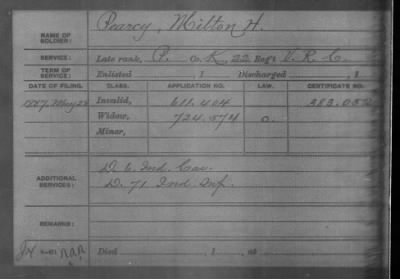 NAME OF SOLDIER: Pearcy, Milton H.
SERVICE: Late rank, P. Co. K, 22 Reg't V. R. C.
TERM OF SERVICE: Enlisted , 1 Discharged , 1
DATE OF FILING. CLASS. APPLICATION NO. LAW. CERTIFICATE NO.
1887, May 28 Invalid, 611.404
Widow, 724.574
Minor,
ADDITIONAL SERVICES: D. 6. Ind. Cav.
D. 71 Ind. Inf.
REMARKS:
Died , 1 , at